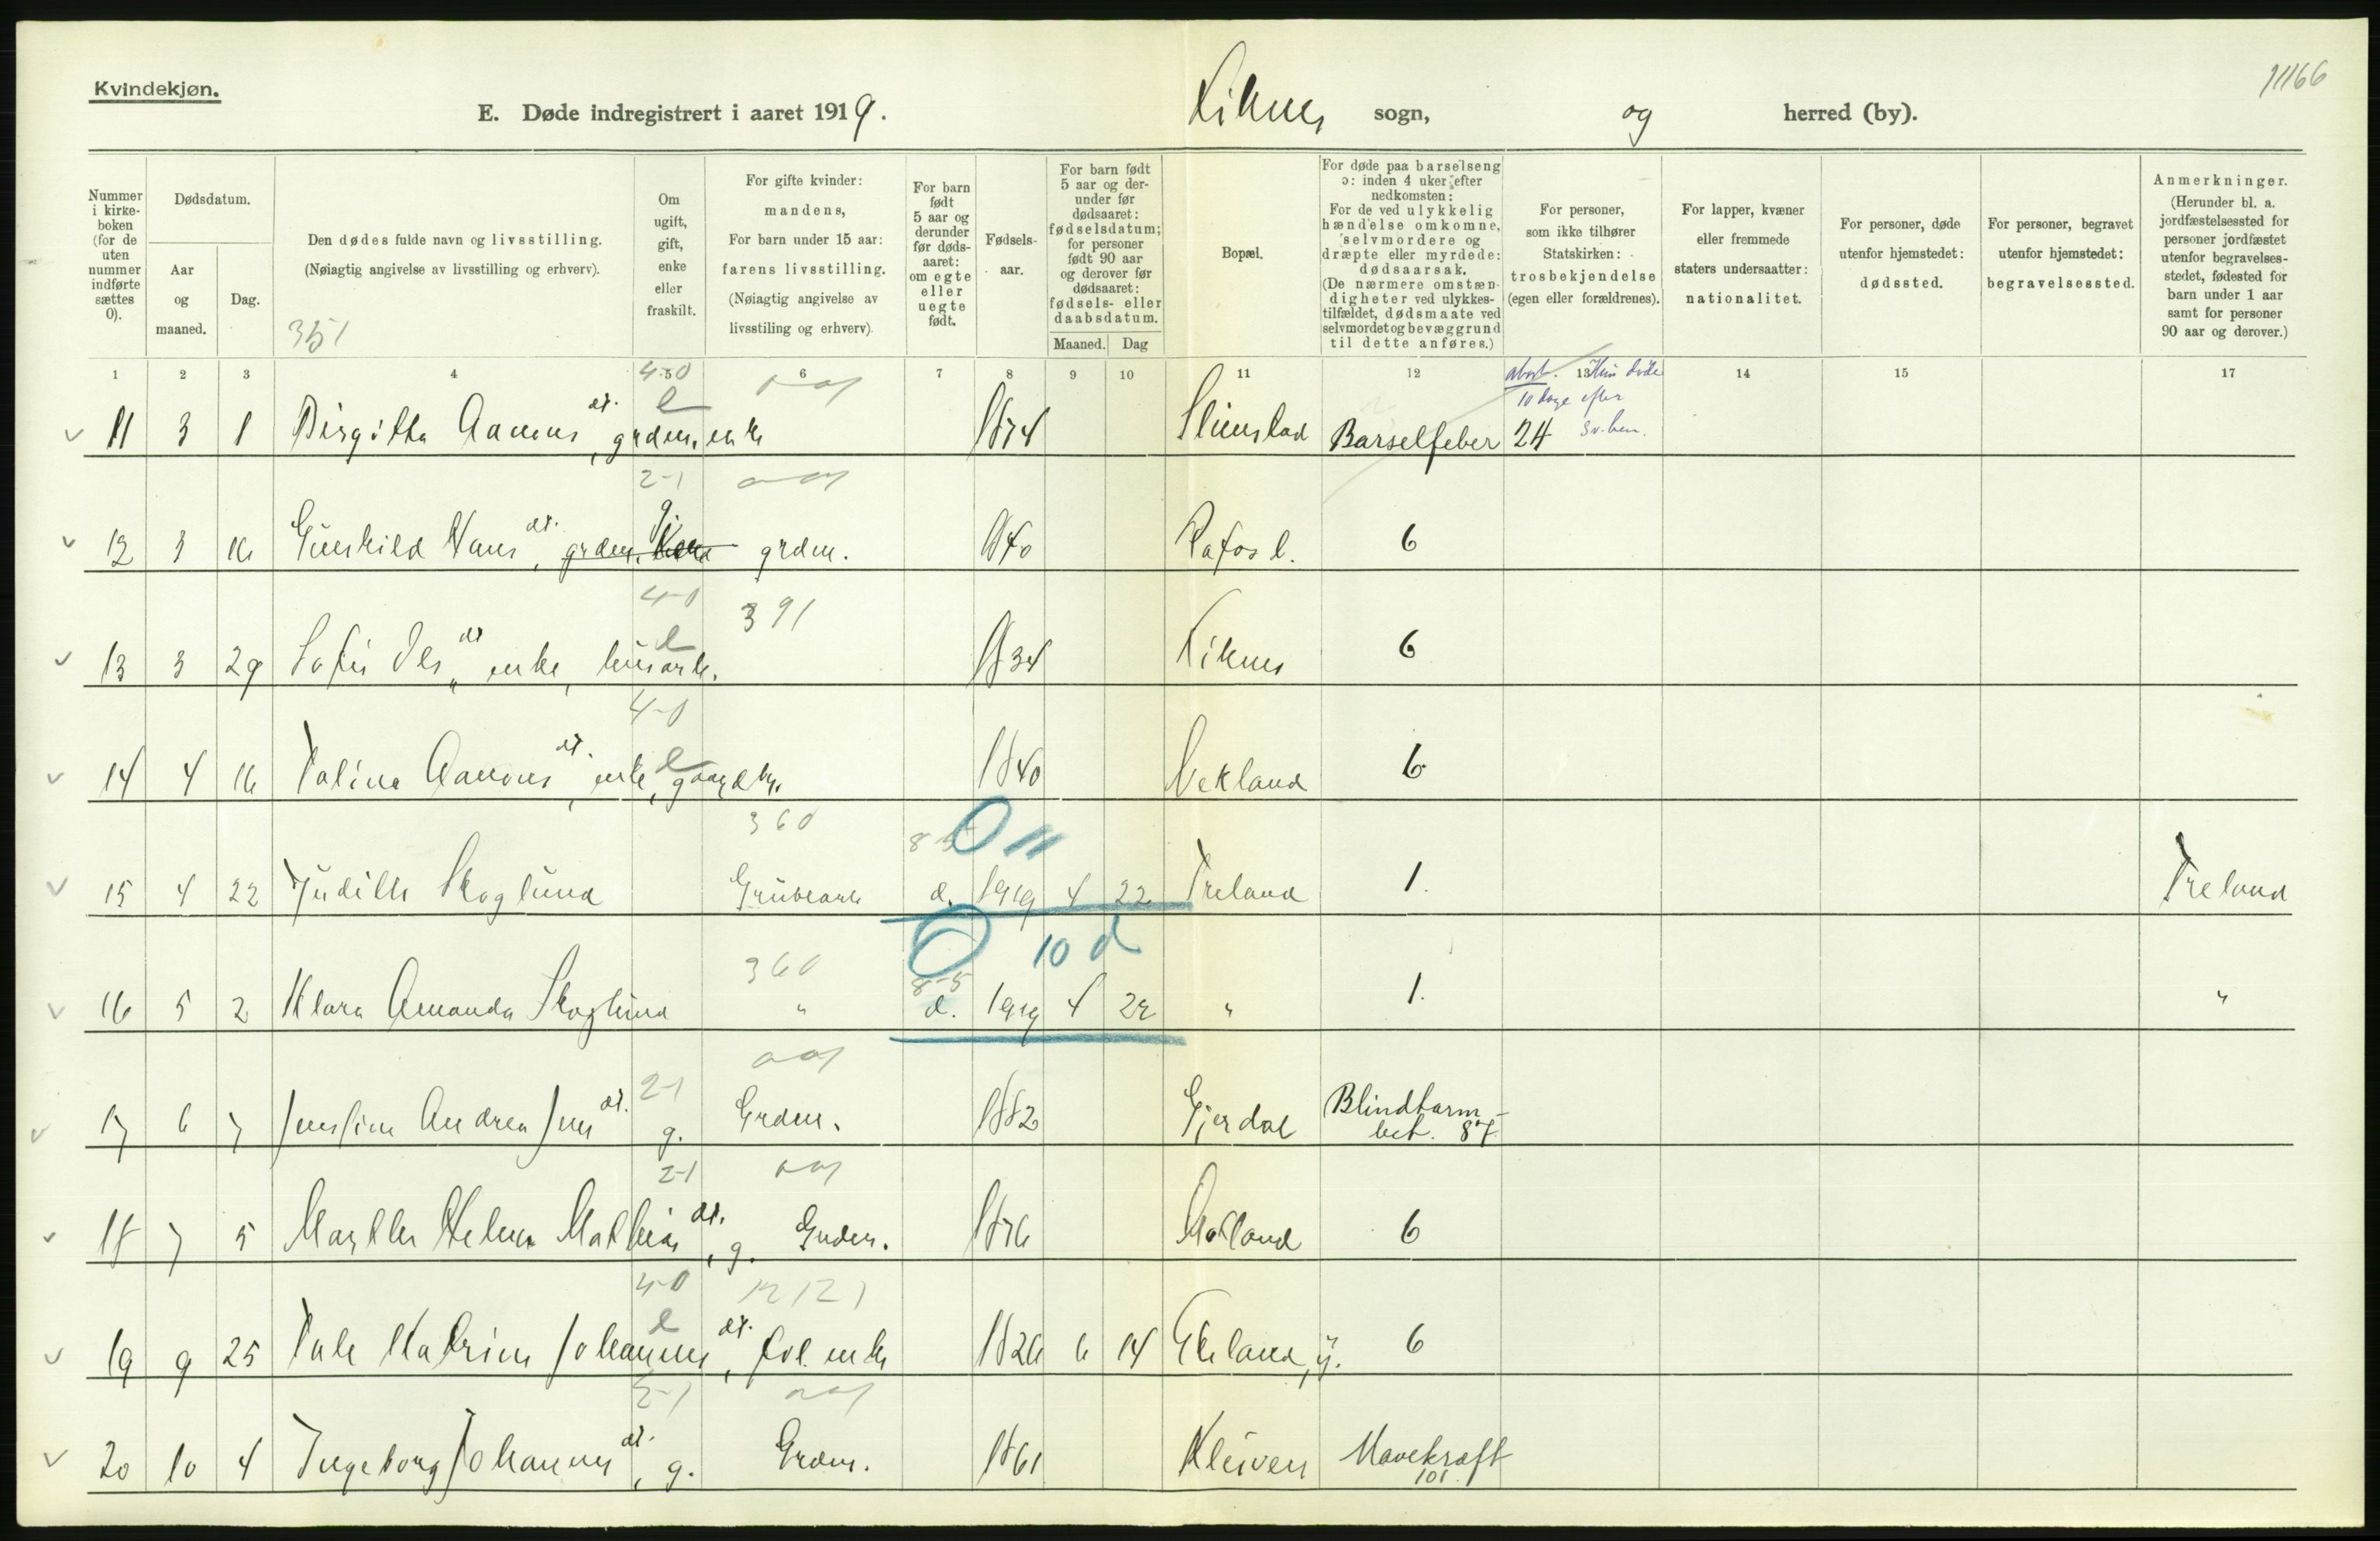 Kvindekjøn.
E. Døde indregistrert i aaret 1919.
sogn,
og
herred (by).
Nummer i kirkeboken (for de uten nummer indførte sættes 0).
Dødsdatum.
Aar og maaned.
Dag.
Den dødes fulde navn og livsstilling.
(Nøiagtig angivelse av livsstilling og erhverv).
351
Om ugift, gift, enke eller fraskilt.
For gifte kvinder: mandens,
For barn under 15 aar: farens livsstilling.
(Nøiagtig angivelse av livsstiling og erhverv)
For barn født 5 aar og derunder før dødsaaret: om egte eller uegte født.
Fødselsaar.
For barn født 5 aar og derunder før dødsaaret: fødselsdatum; for personer født 90 aar og derover før dødsaaret: fødsels- eller daabsdatum.
Maaned. Dag
Bopæl.
For døde paa barselseng ɔ: inden 4 uker efter nedkomsten:
For de ved ulykkelig hændelse omkomne, selvmordere og dræpte eller myrdede: dødsaarsak.
(De nærmere omstændigheter ved ulykkestilfældet, dødsmaate ved selvmordet og bevæggrund til dette anføres.)
For personer, som ikke tilhører Statskirken: trosbekjendelse (egen eller forældrenes).
For lapper, kvæner eller fremmede staters undersaatter: nationalitet.
For personer, døde utenfor hjemstedet: dødssted.
For personer, begravet utenfor hjemstedet: begravelsessted.
Anmerkninger.
(Herunder bl. a. jordfæstelsessted for personer jordfæstet utenfor begravelsesstedet, fødested for barn under 1 aar samt for personer 90 aar og derover.)
1 2 3 4 5 6 7 8 9 10 11 12 13 14 15 17
abort. Hun døde 10 dage efter
11 3 1 Birgitha Aanons dt., grdm. enke 1874 Barselfeber 24
2-1
12 3 16 Gunhild Hans dt., g. grdm. 1840 Rafoss l. 6
4-0 391
13 3 29 Sofie Ols dt. enke, husarb. 1834 6
4-0
14 4 16 Talina Aanons dt., enke, e 1840 6
360 8-5 0 11
15 4 22 Judith Skoglund Grubearb d. 1919 4 22 Treland 1. Treland
360 8-5 0 10 d
16 5 2 Klara Amanda Skoglund " d. 1919 4 22 " 1. "
2-1
17 6 7 Jensine Andrea Jens dt. g. Grdm. 1882 Gjerdal Blindtarm- bet. 87
2-1
18 7 5 Marthe Helene Mathias dt., g. Grdm. 1876 6
4-0
19 9 25 Tale Katrine Johannes dt., enke 1826 6 14 Ekeland, y. 6
2-1
20 10 4 Ingeborg Johannes dt., g. Grdm. 1861 Kleiven Mavekræft 101.